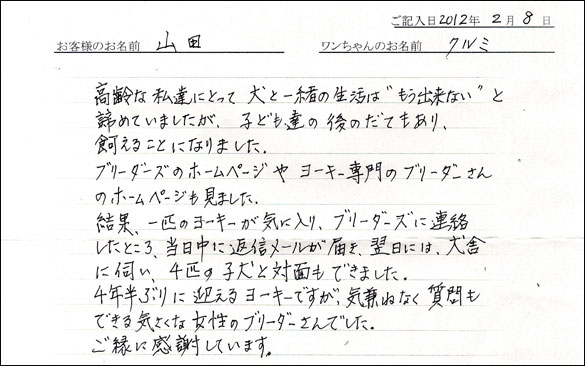 ご記入日2012年 2月 8日
お客様のお名前 山田 ワンちゃんのお名前 クルミ
高齢な私達にとって 犬と一緒の生活は“もう出来ない”と
諦めていましたが、子ども達の後のだてもあり、
飼えることになりました。
ブリーダーズのホームページや ヨーキー専門のブリーダーさん
のホームページも見ました。
結果、一匹のヨーキーが気に入り、ブリーダーズに連絡
したところ、当日中に返信メールが届き、翌日には、犬舎
に伺い、4匹の子犬と対面もできました。
4年半ぶりに迎えるヨーキーですが、気兼ねなく質問も
できる気さくな女性のブリーダーさんでした。
ご縁に感謝しています。